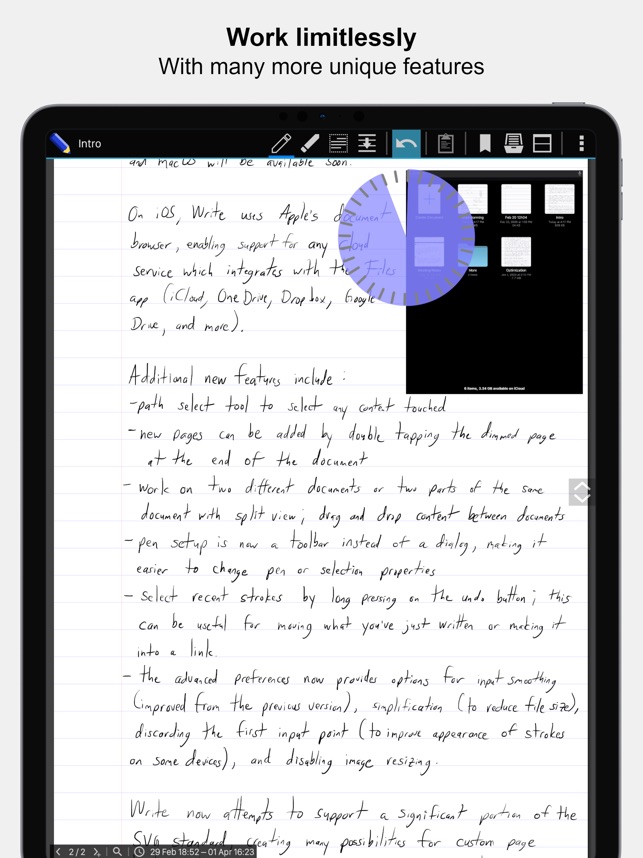 Work limitlessly
With many more unique features
Intro
and MacOS will be available soon.
On iOS, Write uses Apple's document
browser, enabling support for any cloud
service which integrates with the Files
app (iCloud, OneDrive, Dropbox, Google
Drive, and more).
Optimization
6 items, 5.34 GB available on iCloud
Additional new features include:
- path select tool to select any content touched
- new pages can be added by double tapping the dimmed page
at the end of the document
- work on two different documents or two parts of the same
document with split view; drag and drop content between documents
- pen setup is now a toolbar instead of a dialog, making it
easier to change pen or selection properties
- Select recent strokes by long pressing on the undo button; this
can be useful for moving what you've just written or making it
into a link.
- the advanced preferences now provides options for input smoothing
(improved from the previous version), simplification (to reduce file size),
discarding the first input point (to improve appearance of strokes
on some devices), and disabling image resizing.
Write now attempts to support a significant portion of the
SVG standard creating many possibilities for custom page
2/2 29 Feb 18:52 – 01 Apr 16:23